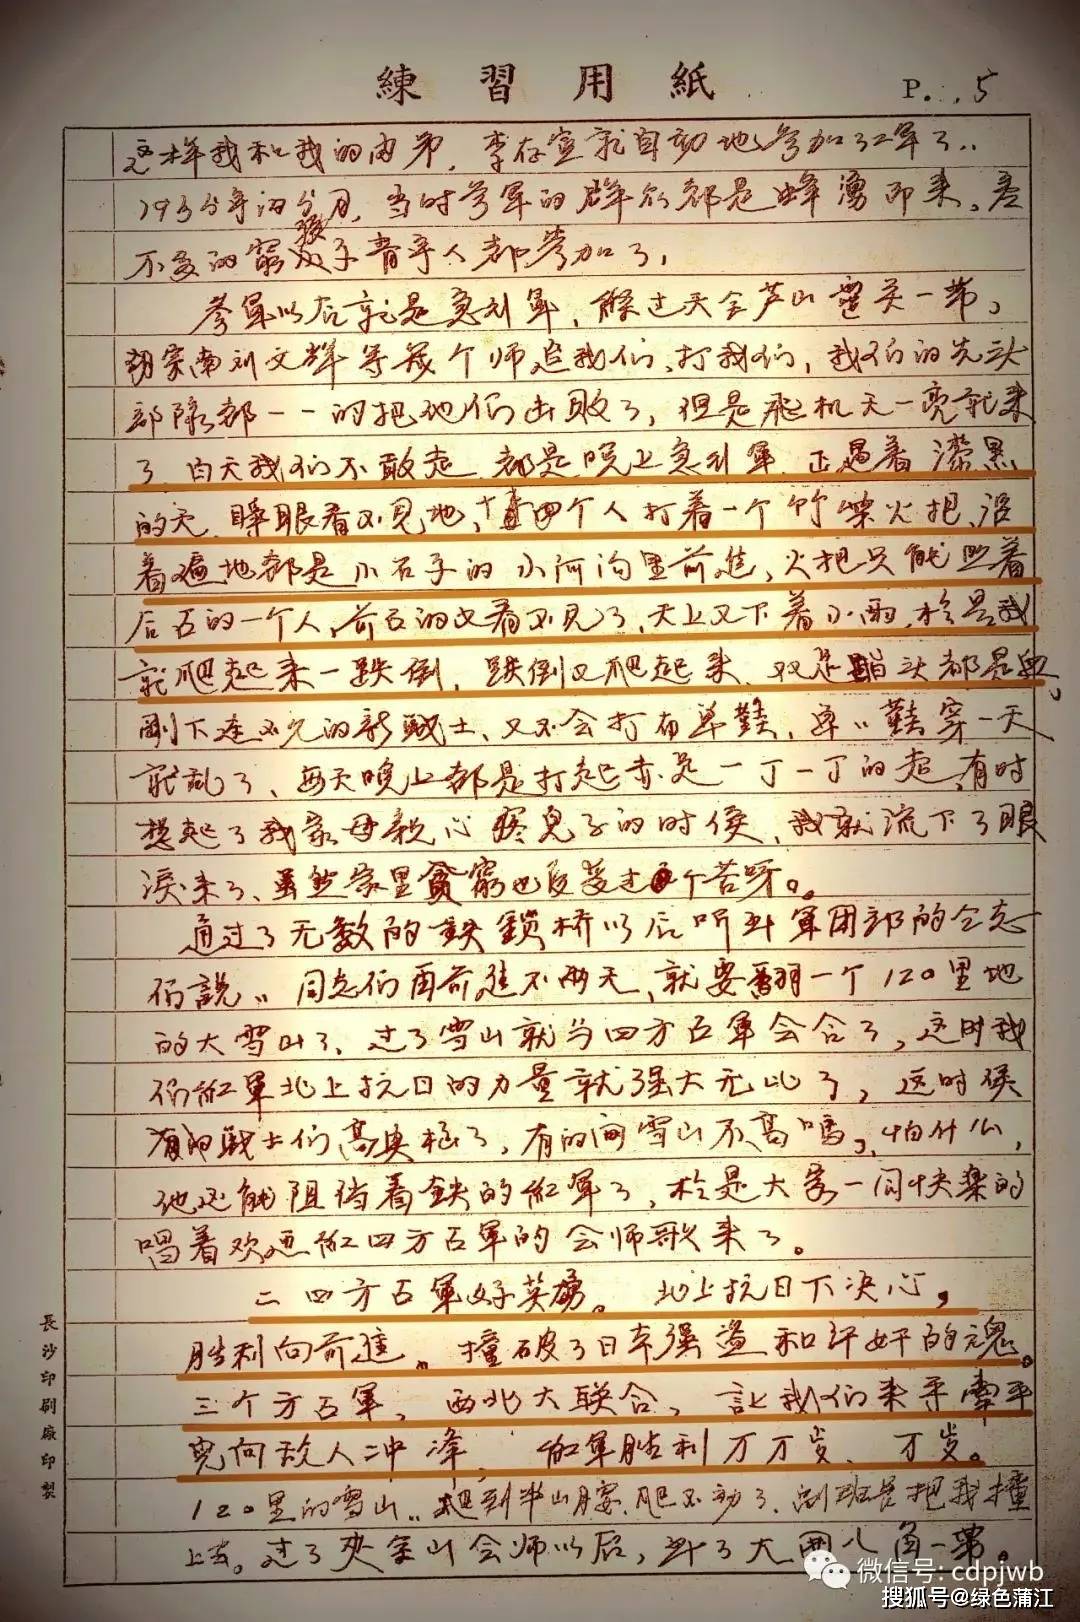 練習用紙 P. 5
这样我和我的内弟、李存宣就自动地参加了红军了..
1935年的 月,当时参军的群众都是蜂湧而来。差
不多的窮孩子青年人都参加了,
参军以后就是急引軍, 过天全芦山 一带。
胡宗南刘文辉等幾个师追我们、打我们,我们的先头
部隊都一一的把他们击敗了,但是飛机天一亮就来
了、白天我们不敢走、都是晚上急引軍、正遇着漆黑
的天、睁眼看不見地、 四个人打着一个竹柴火把、沿
着遍地都是小石子的小河沟里前進、火把只能照着
后面的一个人、前面的又看不見了、天上又下着小雨、於是我
就爬起来一跌倒,跌倒又爬起来、 头都是血、
剛下连不久的新战士、又不会打布草鞋、草鞋穿一天
就乱了、每天晚上都是打起赤足一丁一丁的 、有时
想起了我家母親心疼兒子的时侯,我就流下了眼
淚来了、虽然家里貧窮也沒受过 个苦呀。
通过了无数的鉄鎖桥以后听到軍团部的 志
们說“同志们再前進不两天、就要翻一个120里地
的大雪山了、过了雪山就与四方面軍会合了,这时我
们红軍北上抗日的力量就强大无比了,这时侯
有的战士们高興极了,有的问雪山不高嗎。怕什么,
他还能阻挡着鉄的红軍了,於是大家一同快樂的
唱着欢迎红四方面軍的会师歌来了。
二四方面軍好英勇。 北上抗日下决心,
胜利向前進。撞破了日本强盜和汗奸的魂。
三个方面軍,西北大联合,让我们来手牽手
兒向敌人冲 ,红軍胜利万万岁、万岁。
120里的雪山、 到半山腰、爬不动了、副班長把我撞
上去。过了夾金山会师以后,到了大 八角一帶。
長沙印刷厰印製
微信号: cdpjwb
搜狐号@绿色蒲江